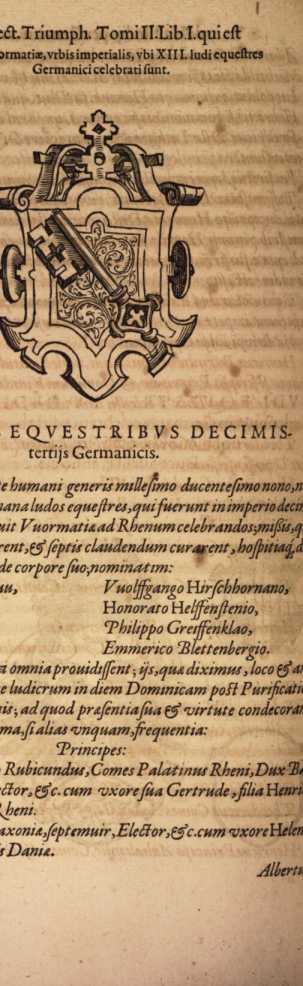 ect. Triumph. Tomi II. Lib. I. qui est
ormatiæ, vrbis imperialis, vbi XIII. ludi equestres
Germanici celebrati sunt.
EQVESTRIBVS DECIMIS-
tertijs Germanicis.
te humani generis millesimo ducentesimo nono,
mana ludos equestres, qui fuerunt in imperio decim
uit Vuormatiæ ad Rhenum celebrandos; missis, q
rent, & septis claudendum curarent, hospitiaq́;
de corpore suo, nominatim:
Vuolffgango Hirschhornano,
Honorato Helffenstenio,
Philippo Greiffenklao,
Emmerico Blettenbergio.
omnia prouidissent; ijs, quæ diximus, loco & an
e ludicrum in diem Dominicam post Purificati
nis; ad quod præsentia sua & virtute condecoran
ma, si alias vnquam, frequentia:
Principes:
Rubicundus, Comes Palatinus Rheni, Dux Ba
ctor, &c. cum vxore sua Gertrude, filia Henri
Rheni.
axoniæ, septemuir, Elector, &c. cum vxore Helen
is Daniæ.
Albertu